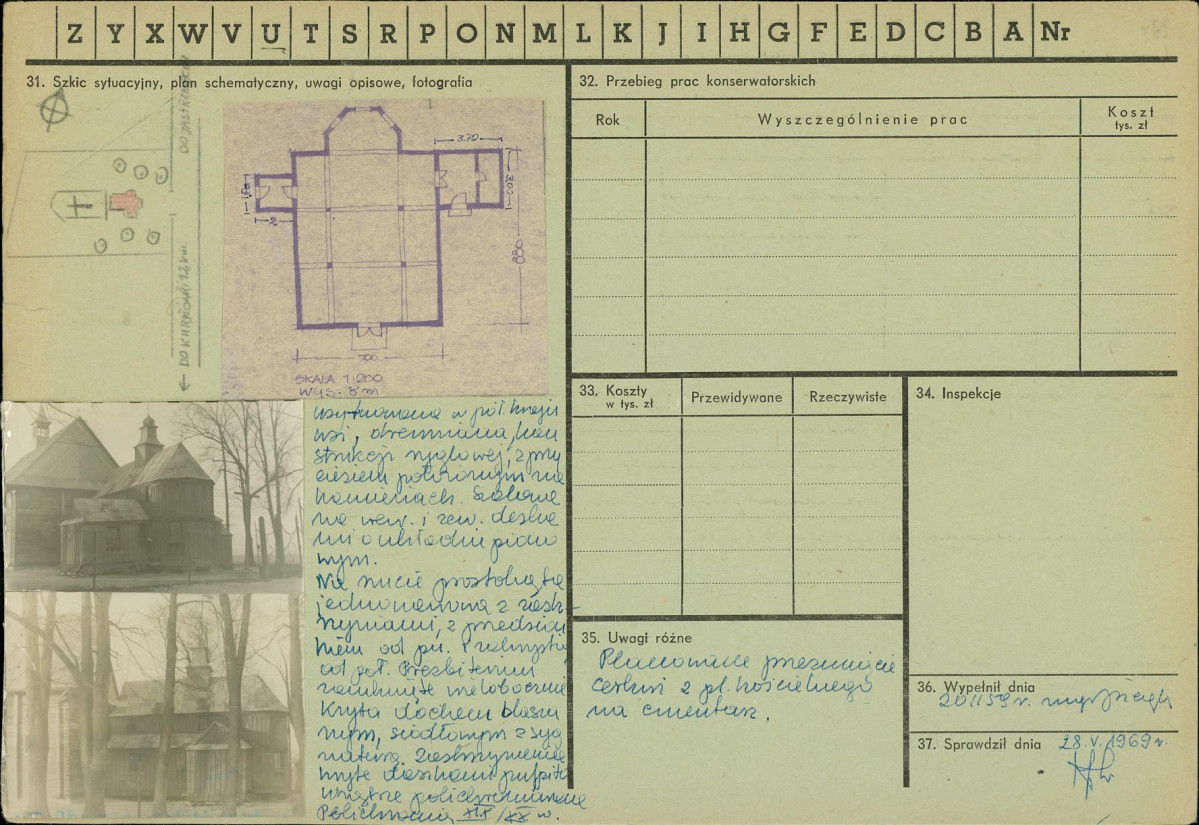 Z Y X W V U T S R P O N M L K J I H G F E D C B A Nr
31. Szkic sytuacyjny, plan schematyczny, uwagi opisowe, fotografia
3.70
3.00
880
2
700
SKALA 1:200
WYS. 8 m
usytuowana w poł. krańcu
wsi, drewniana, kon
strukcji ryglowej, z przy
ciesiem położonym na
kamieniach. Szalowana
na wew. i zew. deska
mi o układzie piono
wym.
Na rzucie prostokąta
jednonawowa z zaokr-
z przedsion
kiem od pn. i zakrystią
od poł. Prezbiterium
zamknięte wielobocznie
Kryta dachem blasza
nym, siodłowym z syg
naturką.
kryte daszkami pulpito
wnętrze polichromowane
Polichromia XIX/XX w.
32. Przebieg prac konserwatorskich
Rok
Wyszczególnienie prac
Koszt
tys. zł
33. Koszty
w tys. zł
Przewidywane
Rzeczywiste
34. Inspekcje
35. Uwagi różne
Planowane przesunięcie
cerkwi z pl. kościelnego
na cmentarz.
36. Wypełnił dnia
20 II 59 r. mgr
37. Sprawdził dnia 28.V.1969 r.